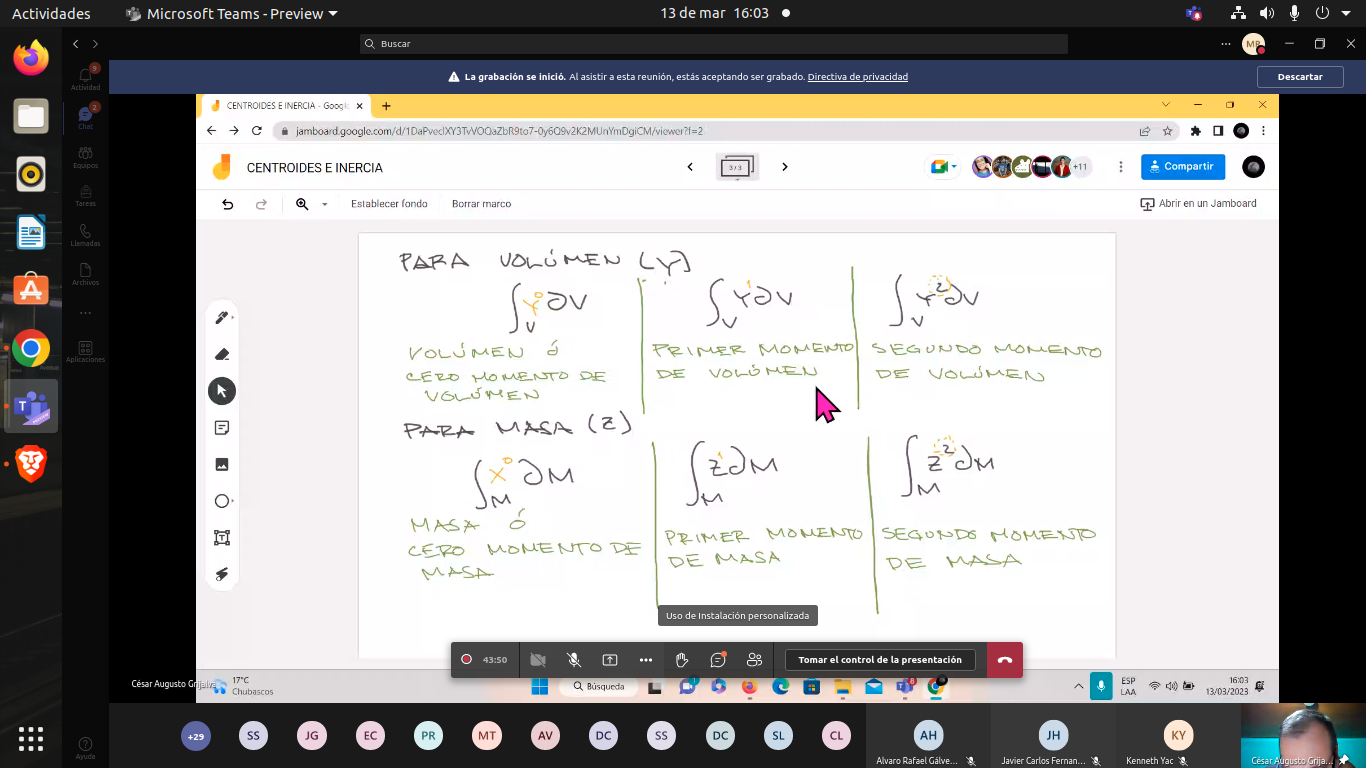 Actividades
Microsoft Teams - Preview
13 de mar 16:03
Buscar
MR
9
Actividad
2
Chat
Equipos
Tareas
Llamadas
Archivos
Aplicaciones
Ayuda
La grabación se inició. Al asistir a esta reunión, estás aceptando ser grabado. Directiva de privacidad
Descartar
CENTROIDES E INERCIA - Google
jamboard.google.com/d/1DaPveclXY3TvVOQaZbR9to7-0y6Q9v2K2MUnYmDgiCM/viewer?f=2
CENTROIDES E INERCIA
3 / 3
+11
Compartir
Establecer fondo
Borrar marco
Abrir en un Jamboard
PARA VOLÚMEN (Y)
∫V Y⁰ ∂V
∫V Y¹ ∂V
∫V Y² ∂V
VOLÚMEN Ó
CERO MOMENTO DE
VOLÚMEN
PRIMER MOMENTO
DE VOLÚMEN
SEGUNDO MOMENTO
DE VOLÚMEN
PARA MASA (Z)
∫M X⁰ ∂M
∫M Z¹ ∂M
∫M Z² ∂M
MASA Ó
CERO MOMENTO DE
MASA
PRIMER MOMENTO
DE MASA
SEGUNDO MOMENTO
DE MASA
Uso de Instalación personalizada
43:50
Tomar el control de la presentación
César Augusto Grijalva
17°C
Chubascos
Búsqueda
ESP
LAA
16:03
13/03/2023
+29
SS
JG
EC
PR
MT
AV
DC
SS
DC
SL
CL
AH
Alvaro Rafael Gálve...
JH
Javier Carlos Fernan...
KY
Kenneth Yac
César Augusto Grija...